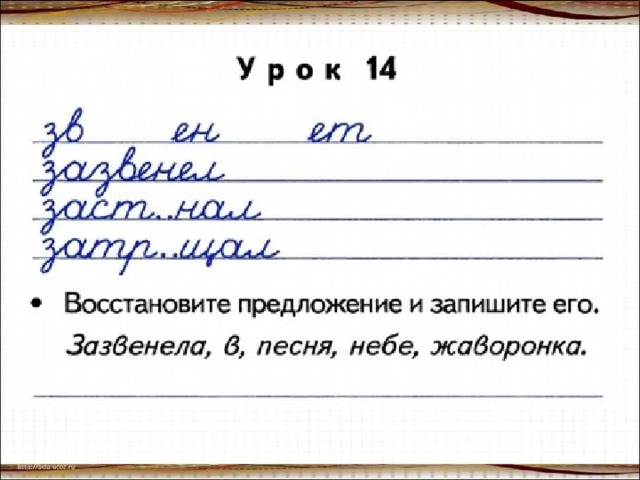 Урок 14
зв ен ет
зазвенел
заст..нал
затр..щал
• Восстановите предложение и запишите его.
Зазвенела, в, песня, небе, жаворонка.